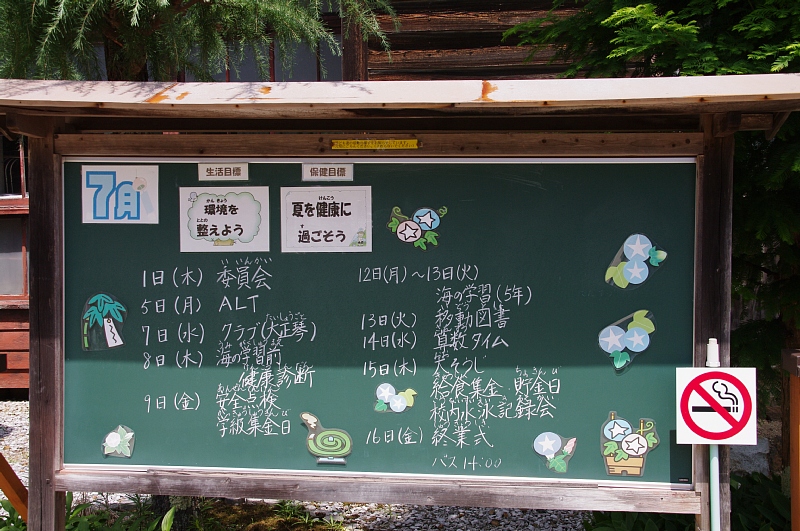 7月
生活目標
かん きょう
環境を
ととの
整えよう
保健目標
けんこう
夏を健康に
す
過ごそう
1日(木) 委員会
いいんかい
5日(月) ALT
7日(水) クラブ(大正琴)
たいしょうごと
8日(木) 海の学習前
健康診断
9日(金) 安全点検
学級集金日
12日(月)〜13日(火)
海の学習(5年)
13日(火) 移動図書
14日(水) 算数タイム
15日(木) 大そうじ
給食集金、貯金日
校内水泳記録会
16日(金) 終業式
バス14:00